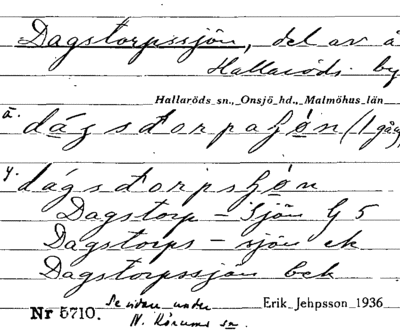 Dagstorpssjön, del av å
Hallaröds by
Hallaröds sn., Onsjö hd., Malmöhus län
ä. dágsđorpaʃǿn (1 gång
y. dágsđorpsʃǿn
Dagstorp – Sjön G 5
Dagstorps – sjön ek
Dagstorpssjön bek
Nr 5710. Se vidare under N. Rörums sn.
Erik Jehpsson 1936